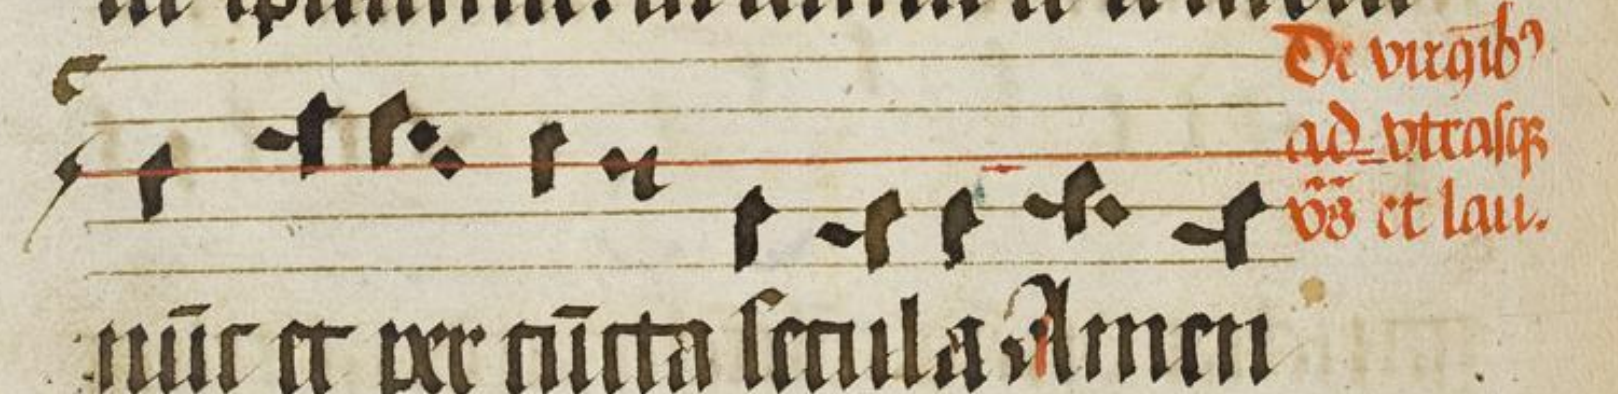 De virgīb⁹
ad vtrasqꝫ
vṣ̄ et lau.
nūc et per cūcta secula Amen